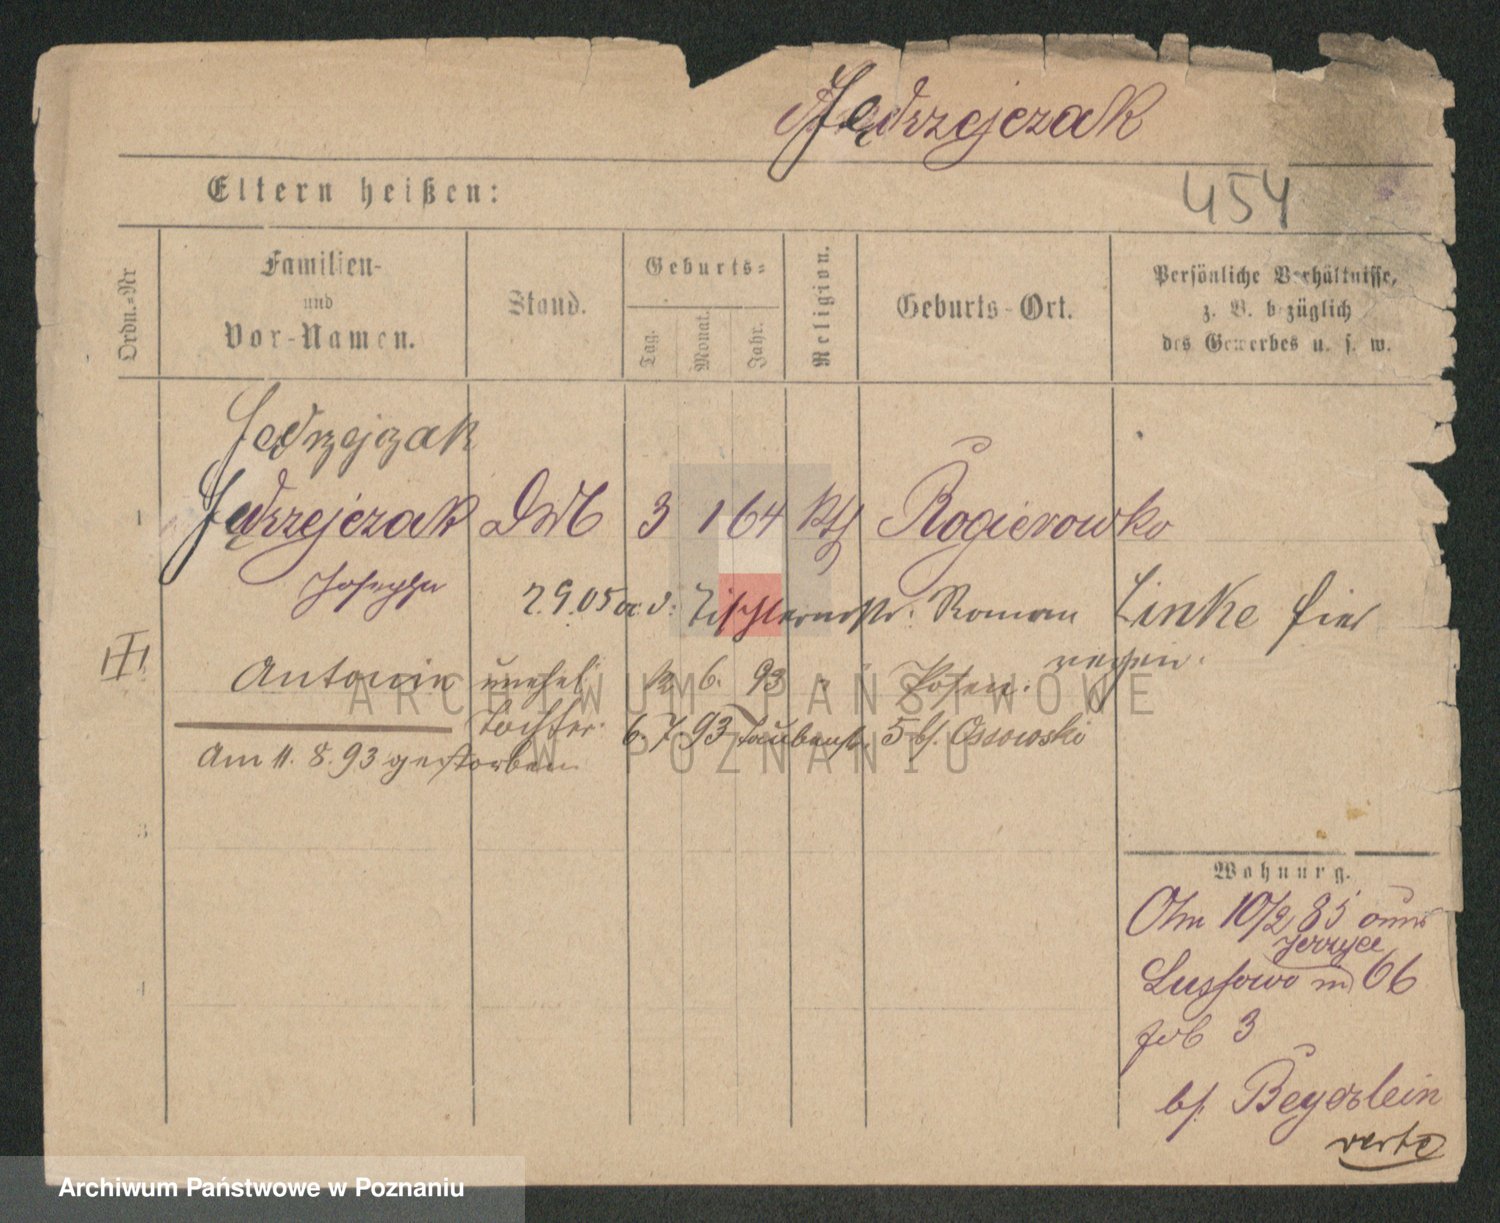 Jędrzejczak
Eltern heißen:
454
Ordn.-Nr
Familien-
und
Vor-Namen.
Stand.
Geburts-
Tag.
Monat.
Jahr.
Religion.
Geburts-Ort.
Persönliche Verhältnisse,
z. B. bezüglich
des Gewerbes u. s. w.
Jędrzejczak
1 Jędrzejczak 3 1 64 kth Rogierowko
Josepha
2.9.05 Tischlermstr. Roman Linke hier
Antonin unehel 6. 93 Posen.
Tochter. 6.7.93 Taubenst. 5 b/. Ossowski
Am 11. 8. 93 gestorben
3
4
Wohnung.
10/2 85
Jerzyce
Lussowo 66
3
b/. Beyerlein
verte
ARCHIWUM PAŃSTWOWE
W POZNANIU
Archiwum Państwowe w Poznaniu